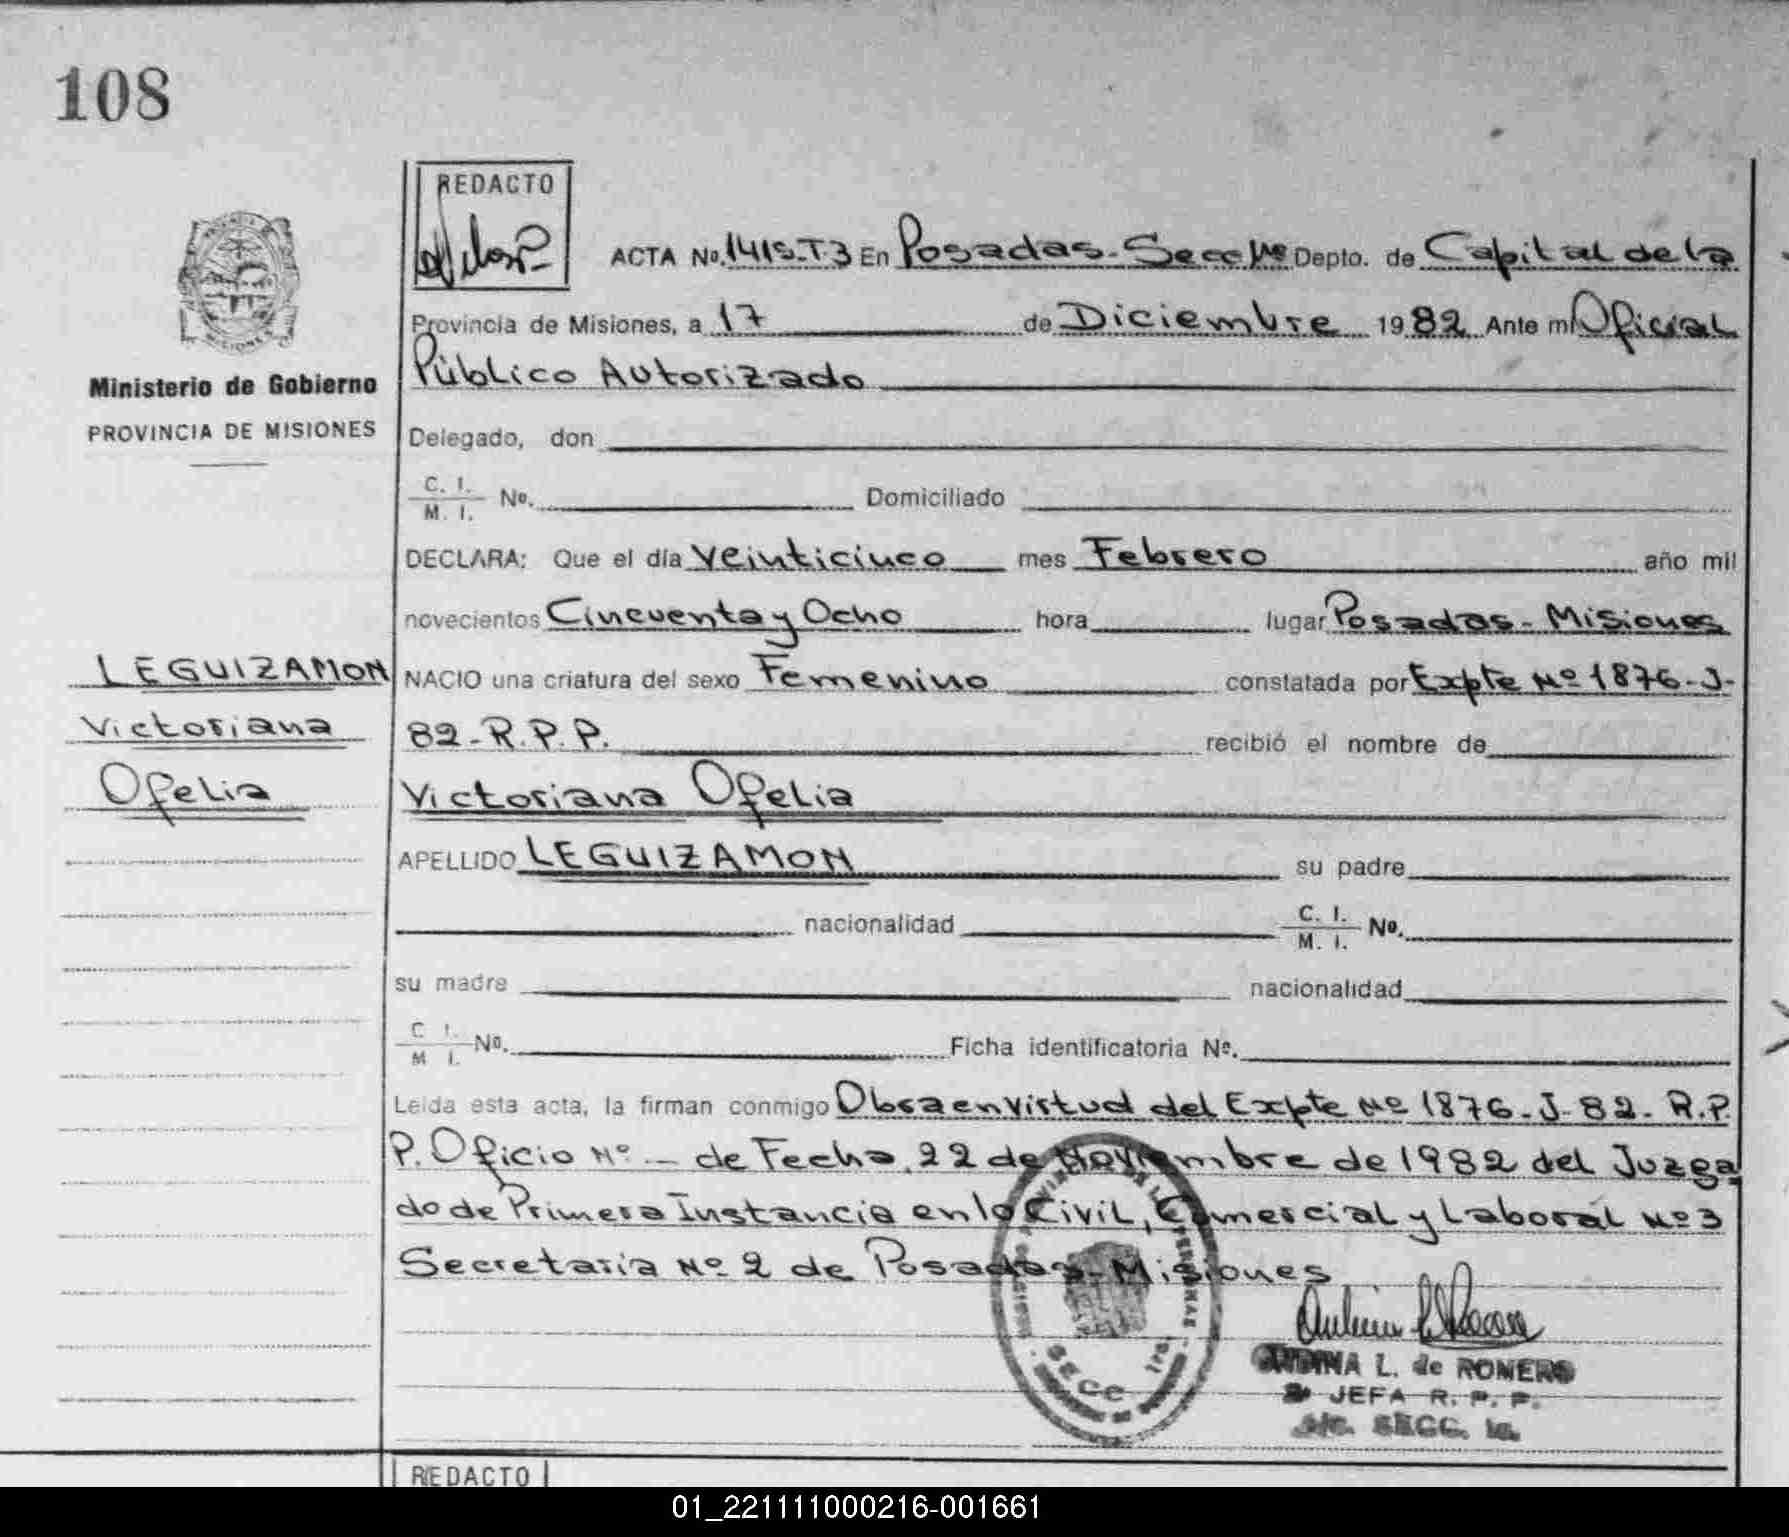 108
REDACTO
ACTA No. 1415-T-3 En Posadas-Secc 1ª Depto. de Capital de la
Provincia de Misiones, a 17 de Diciembre 1982 Ante mi Oficial
Público Autorizado
Ministerio de Gobierno
PROVINCIA DE MISIONES
Delegado, don
C. I.
M. I. No. Domiciliado
DECLARA: Que el día Veinticinco mes Febrero año mil
novecientos Cincuenta y Ocho hora lugar Posadas-Misiones
LEGUIZAMON
Victoriana
Ofelia
NACIO una criatura del sexo Femenino constatada por Expte Nº 1876-J-
82-R.P.P. recibió el nombre de
Victoriana Ofelia
APELLIDO LEGUIZAMON su padre
nacionalidad C. I.
M. I. No.
su madre nacionalidad
C I.
M I. No. Ficha identificatoria Nº.
Leida esta acta, la firman conmigo Obra en virtud del Expte Nº 1876-J-82-R.P.
P. Oficio Nº - de Fecha, 22 de Noviembre de 1982 del Juzga
do de Primera Instancia en lo Civil, Comercial y Laboral Nº 3
Secretaria Nº 2 de Posadas-Misiones
SECC
L. de ROMERO
JEFA R. P. P.
SECC. 1a.
REDACTO
01_221111000216-001661